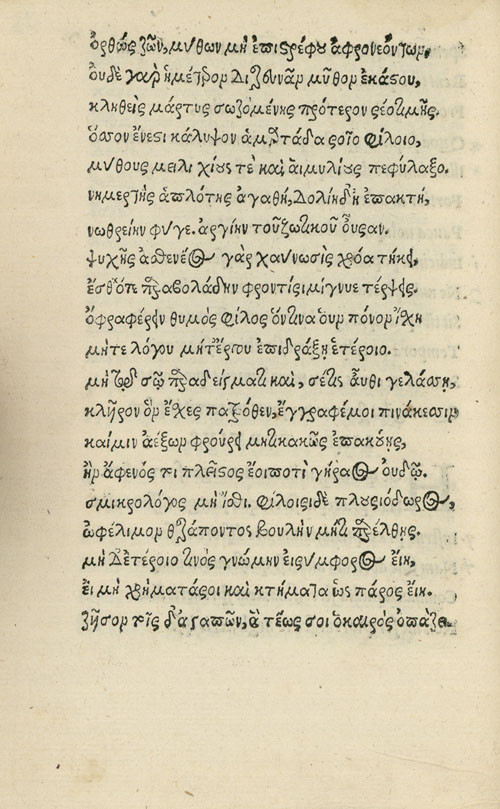 ὀρθῶς ζῶν, μύθων μὴ ἐπιστρέφου ἀφρονεόντων,
ὀυδὲ γὰρ ἡμέτερον διζδυνᾶν μῦθον ἑκάστου,
κληθεὶς μάρτυς σωζομένης πρότερον
ὅσσον ἔνεστι κάλυψον ἁμαρτάδα σοῖο φίλοιο,
μύθους μειλιχίους τὲ καὶ αἱμυλίους πεφύλαξο.
νημερτὴς ἁπλότης ἀγαθή, δολίη δ' ἢ ἐπακτή,
νωθρείην φύγε. ἀργίην τοῦ ζωτικοῦ οὖσαν.
ψυχῆς ἀσθενέος γὰρ χαύνωσις χρόα τήκει,
ἔσθ' ὅτε παραβολάδην φροντίσι μίγνυε τέρψεις.
ὄφρα φέρειν θυμὸς φίλος ὅντινα οὖν πόνον ἴσχῃ
μήτε λόγου μήτ' ἔργου ἐπιδράξῃ ἑτέροιο.
μὴ παρὰ σῷ παραδείσματι καί, σέ τις αὖθι γελάσσῃ,
κλῆρον ὃν ἔχες πατρόθεν, ἔγγραφέ μοι πινάκεσσιν
καί μιν ἀέξων φρούρει μή τι κακῶς ἐπακούῃς,
ἢν ἄφενός τι πλεῖστος ἔοι ποτὶ γήραος οὐδῷ.
σμικρολόγος μὴ ἴσθι. φίλοισι δὲ πλουσιόδωρος,
ὠφέλιμον θεράποντος βουλὴν μή τι παρέλθῃς.
μὴ δ' ἑτέροιο τινὸς γνώμην εἰ σύμφορος εἴη,
εἰ μὴ χρήματά σοι καὶ κτήματα ὡς πάρος εἴη.
ζῆσον τοῖς δ' ἀγαπῶν, ἃ τέως σοι ὁ καιρὸς ὀπάζει.